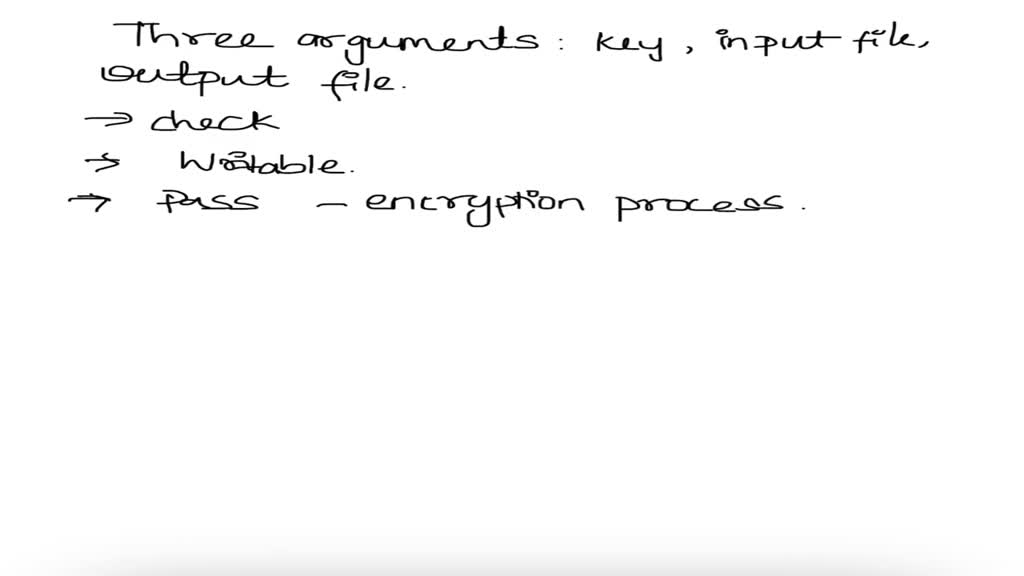 Three arguments : key , input file,
output file.
→ check
→ Writable.
→ Pass - encryption process .